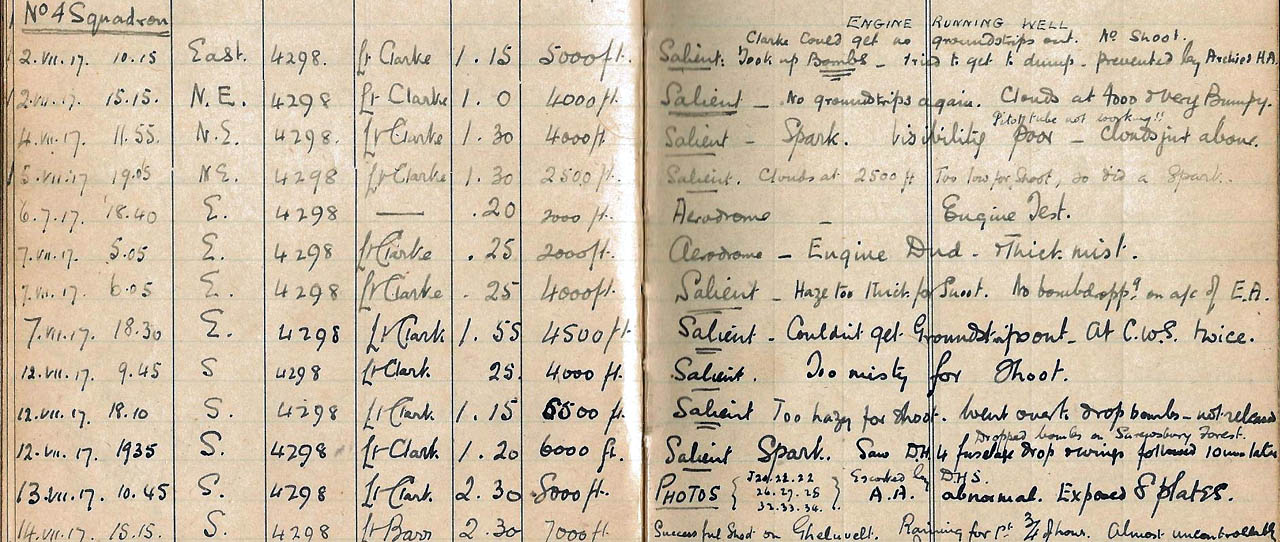 No 4 Squadron
ENGINE RUNNING WELL
Clarke could get no groundstrips out. No Shoot.
2.VII.17. 10.15 East. 4298. Lt Clarke 1.15 5000ft. Salient. Took up Bombs - tried to get to dump - prevented by Archies H.A.
2.VII.17. 15.15. N.E. 4298 Lt Clarke 1.0 4000ft. Salient - No groundstrips again. Clouds at 4000 & very Bumpy.
Pitot tube not working!!
4.VII.17. 11.55. N.E. 4298. Lt Clarke 1.30 4000ft. Salient - Spark. Visibility poor - clouds just above.
5.VII.17 19.05 N.E. 4298 Lt Clarke 1.30 2500ft. Salient. Clouds at 2500 ft Too low for Shoot, so did a Spark.
6.7.17. 18.40 E. 4298 — .20 2000 ft. Aerodrome - Engine Test.
7.VII.17. 5.05 E. 4298 Lt Clarke .25 2000ft. Aerodrome - Engine Dud - & Thick mist.
7.VII.17. 6.05 E. 4298 Lt Clarke .25 4000ft. Salient - Haze too thick for Shoot. No bombdropp.g on a/c of E.A.
7.VII.17. 18.30 E. 4298 Lt Clark 1.55 4500ft. Salient - Couldn't get Groundstrips out - At C.W.S. twice.
12.VII.17. 9.45 S 4298 Lt Clark .25 4000 ft. Salient. Too misty for Shoot.
12.VII.17. 18.10 S. 4298 Lt Clark 1.15 6500 ft. Salient Too hazy for shoot. Went over to drop bombs - not released
Dropped bombs on Shrewsbury Forest.
12.VII.17. 1935 S. 4298 Lt Clark 1.20 6000 ft. Salient Spark. Saw D.H.4 fuselage drop & wings followed 10 mins later
13.VII.17. 10.45 S. 4298 Lt Clark 2.30 8000ft. PHOTOS { J20.22.22 26.27.28 32.33.34. } Escorted by DH5. A.A. abnormal. Exposed 8 plates.
14.VII.17. 15.15. S. 4298 Lt Barr 2.30 7000ft. Successful Shoot on Gheluvelt. Raining for 3/4 of hour. Almost uncontrollable